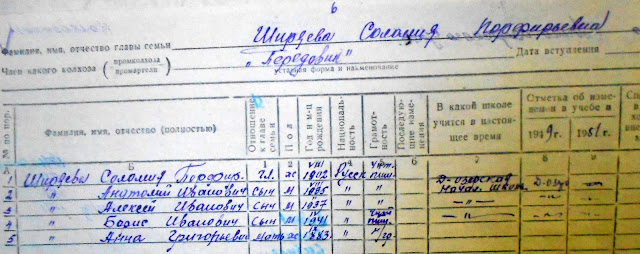 6
Фамилия, имя, отчество главы семьи Ширяева Соломия Порфирьевна
Член какого колхоза (промколхоза промартели) "Передовик" Дата вступления
уставная форма и наименование
№ по пор. Фамилия, имя, отчество (полностью) Отношение к главе семьи Пол Год и м-ц рождения Националь-ность Грамот-ность Последую-щие изме-нения В какой школе учится в настоя-щее время Отметка об изме-нении в учебе в 1949г. 1951г.
Б 1 2 3 4 5 6 7 8 9
1 Ширяева Соломия Перфир. гл. ж VIII 1902 Русск
2 " Анатолий Иванович сын м 1935 " " Д-озерская Началь. школа
3 " Алексей Иванович сын м 1937 " " — " —
4 " Борис Иванович сын м 1941 " — " —
5 " Анна Григорьевн мать ж 1883 " н/гр